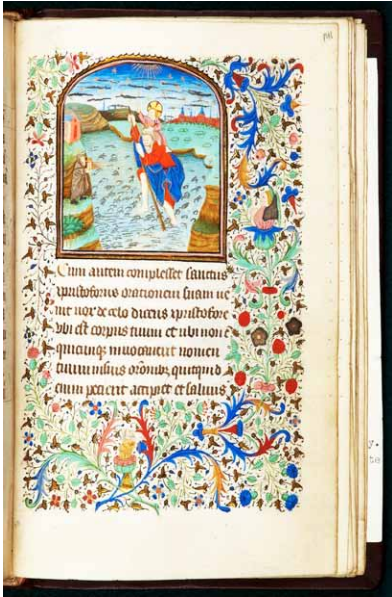 Cum autem complesset sanctus
xpristoforus orationem suam ue
nit uox de celo dicens xpristofore
vbi est corpus tuum et ubi non e
quicunq; inuocauerit nomen
tuum in suis oronibz quicquid
enim petierit accipiet et saluus
y.
te